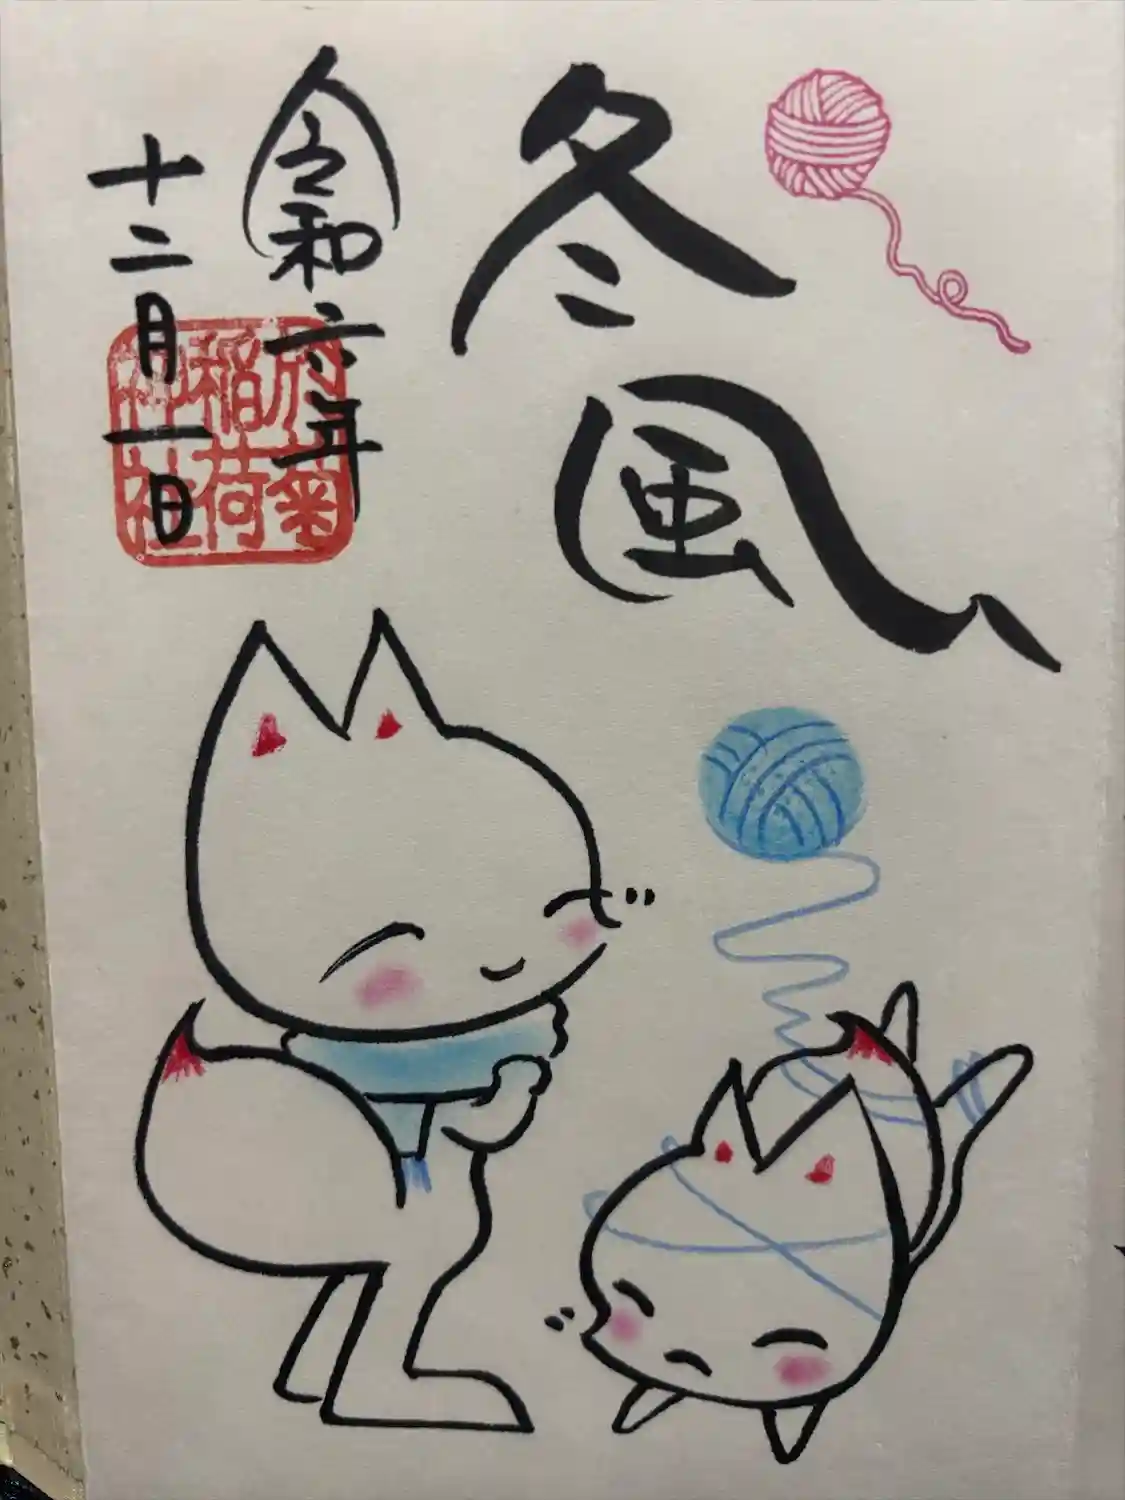 冬風
令和六年
十二月一日
府菊
稲荷
神社